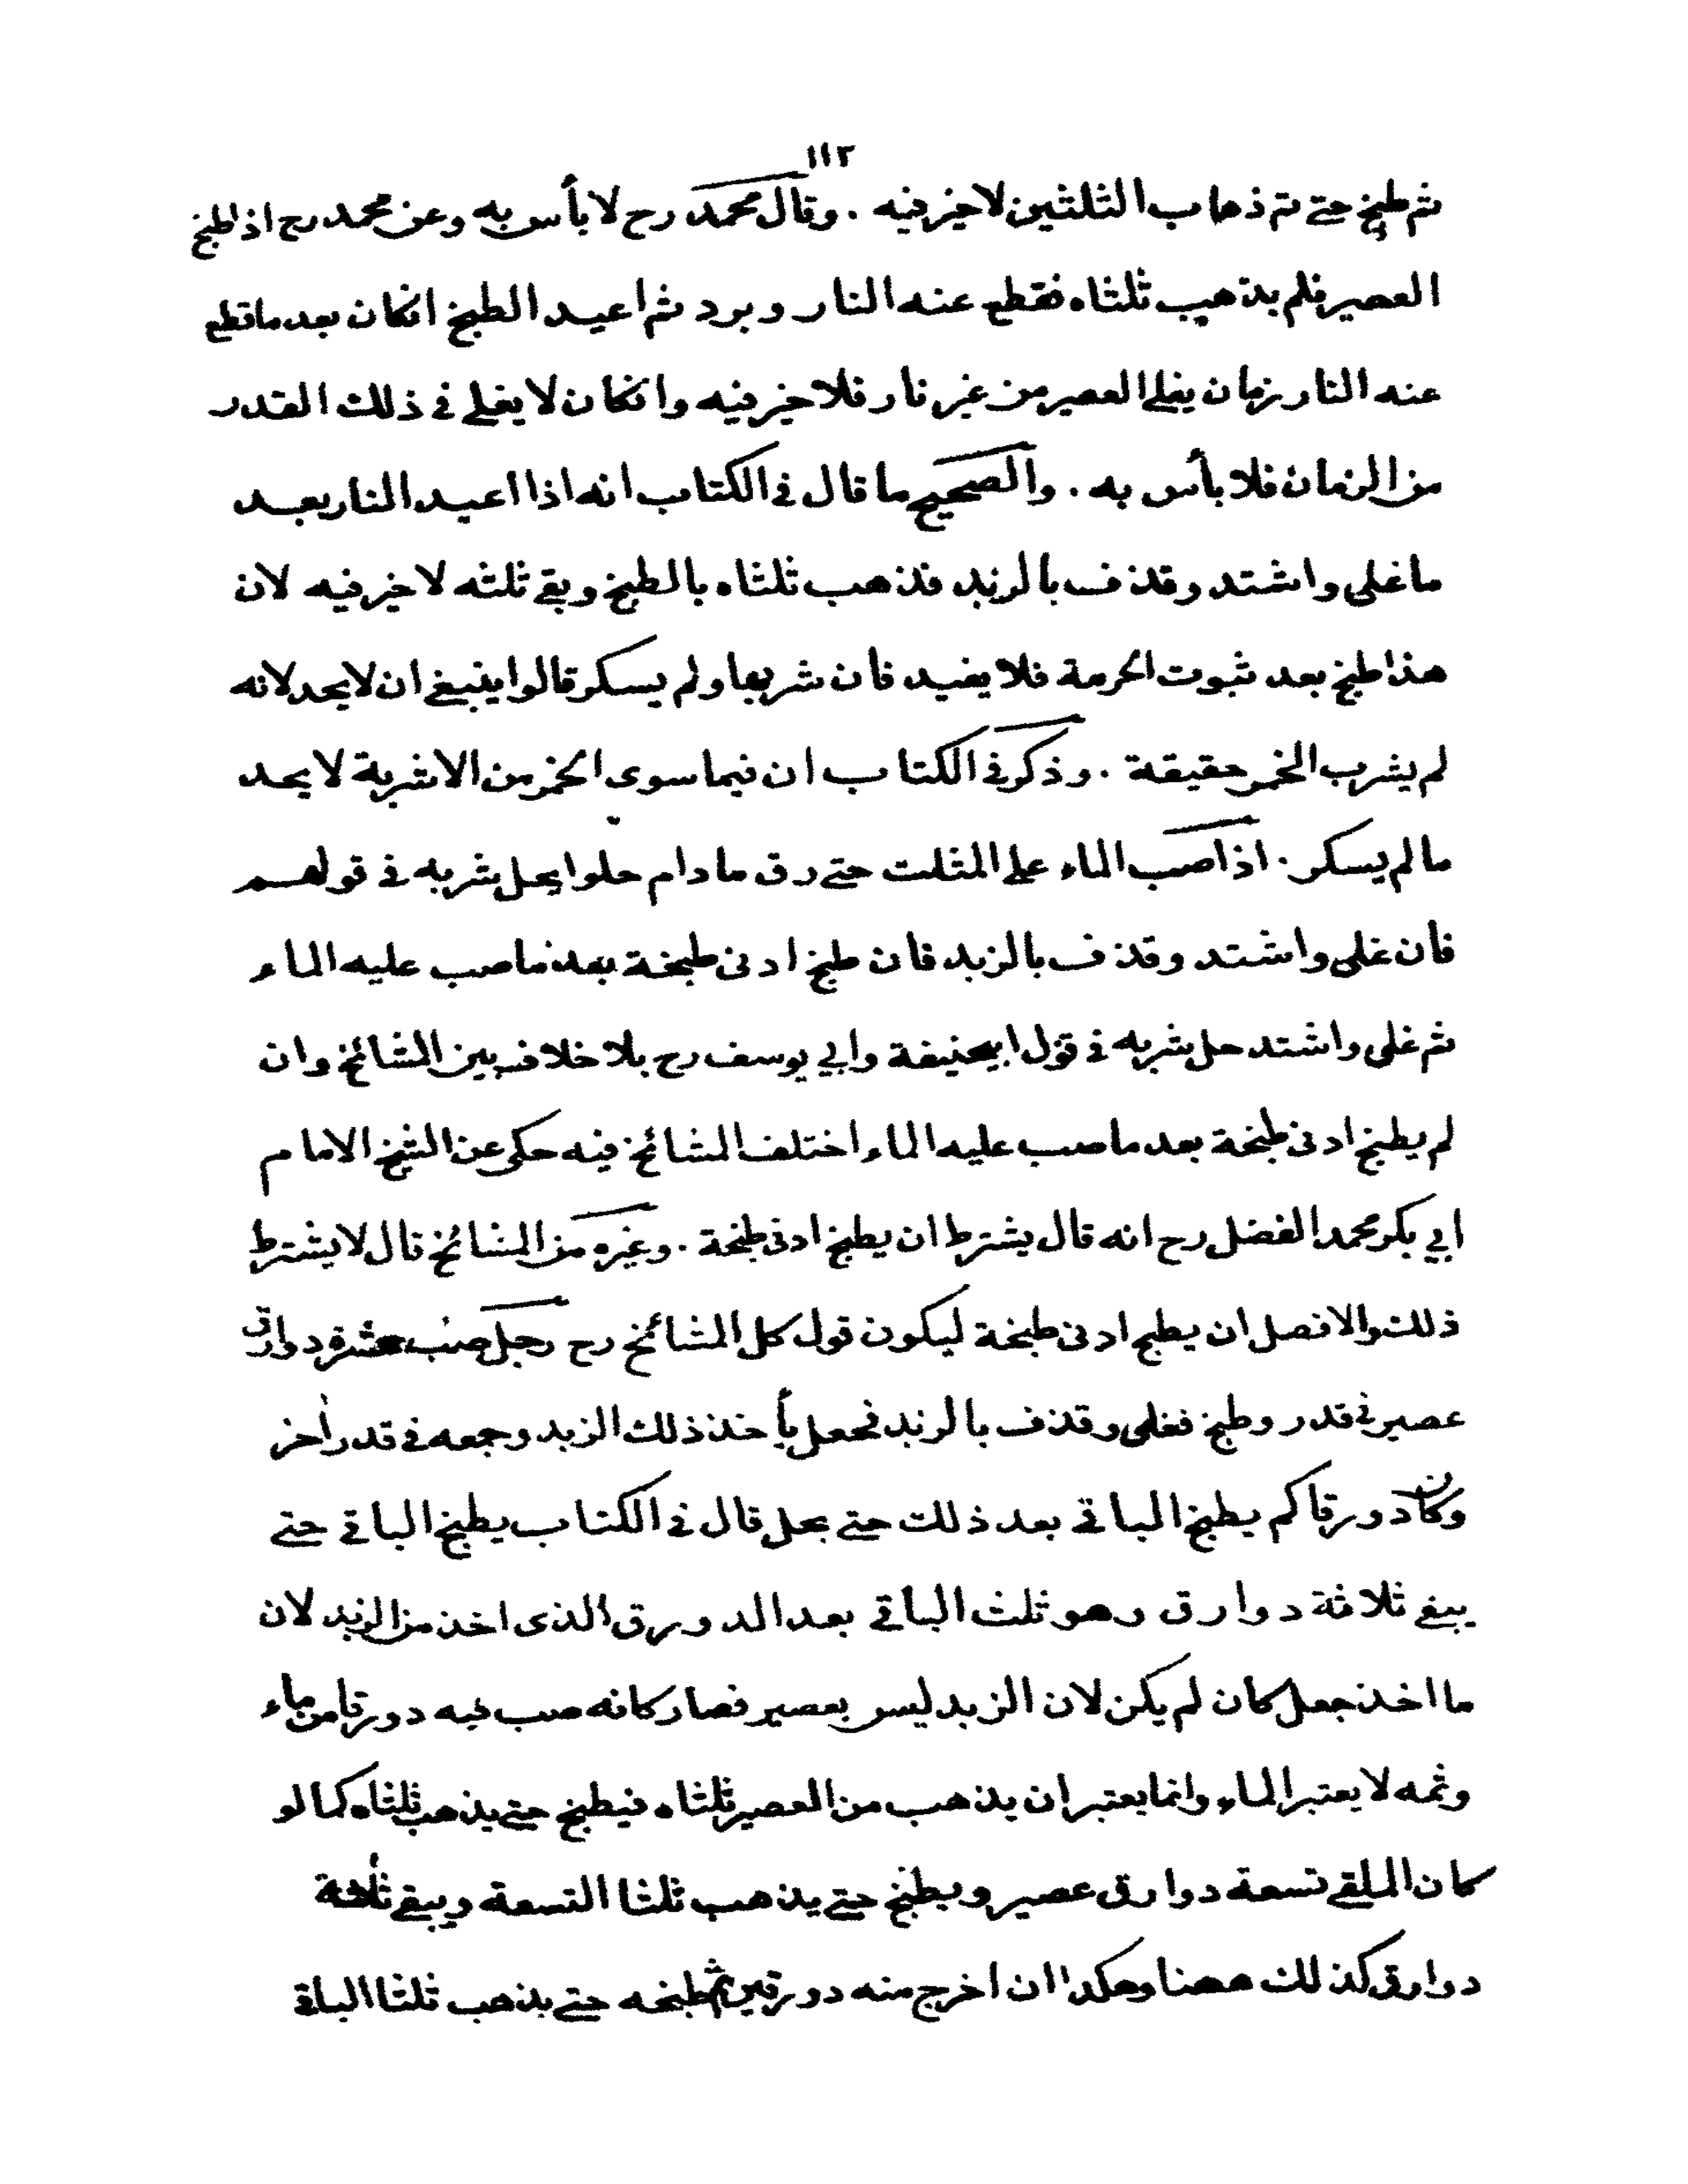 ١١٢
ثم طبخ حتى تم ذهاب الثلثين لا خير فيه . وقال محمد رح لا بأس به وعن محمد رح اذ اطبخ
العصير فلم يذهب ثلثاه فقطع عنه النار وبرد ثم اعيد الطبخ انكان بعد ما قطع
عنه النار زمان يغلي العصير من غير نار فلا خير فيه وانكان لا يغلي في ذلك القدر
من الزمان فلا بأس به . والصحيح ما قال في الكتاب انه اذا اعيد النار بعد
ما غلى واشتد وقذف بالزبد فذهب ثلثاه بالطبخ وبقي ثلثه لا خير فيه لان
هذا طبخ بعد ثبوت الحرمة فلا يفيد فان شربها ولم يسكر قالوا ينبغي ان لا يحد لانه
لم يشرب الخمر حقيقة . وذكر في الكتاب ان فيما سوى الخمر من الاشربة لا يحد
ما لم يسكر . اذا صب الماء على المثلث حتى رق ما دام حلوا يحل شربه في قولهم
فان غلى واشتد وقذف بالزبد فان طبخ ادنى طبخة بعد ما صب عليه الماء
ثم غلى واشتد حل شربه في قول ابيحنيفة وابي يوسف رح بلا خلاف بين المشائخ وان
لم يطبخ ادنى طبخة بعد ما صب عليه الماء اختلف المشائخ فيه حكى عن الشيخ الامام
ابي بكر محمد الفضل رح انه قال يشترط ان يطبخ ادنى طبخة . وغيره من المشائخ قال لا يشترط
ذلك والافضل ان يطبخ ادنى طبخة ليكون قول كل المشائخ رح رجل صب عشرة دوارق
عصير في قدر وطبخ فغلى وقذف بالزبد فجعل يأخذ ذلك الزبد وجمعه في قدر اخر
وكان دورقا كم يطبخ الباقي بعد ذلك حتى يحل قال في الكتاب يطبخ الباقي حتى
يبقى ثلاثة دوارق وهو ثلث الباقي بعد الدورق الذى اخذ من الزبد لان
ما اخذ جعل كان لم يكن لان الزبد ليس بعصير فصار كانه صب فيه دورقا من ماء
وثمه لا يعتبر الماء وانما يعتبر ان يذهب من العصير ثلثاه فيطبخ حتى يذهب ثلثاه كما لو
كان الملقى تسعة دوارق عصير ويطبخ حتى يذهب ثلثا التسعة ويبقى ثلاثة
دوارق كذلك ههنا وهكذا ان اخرج منه دورقين ثم طبخه حتى يذهب ثلثا الباقي